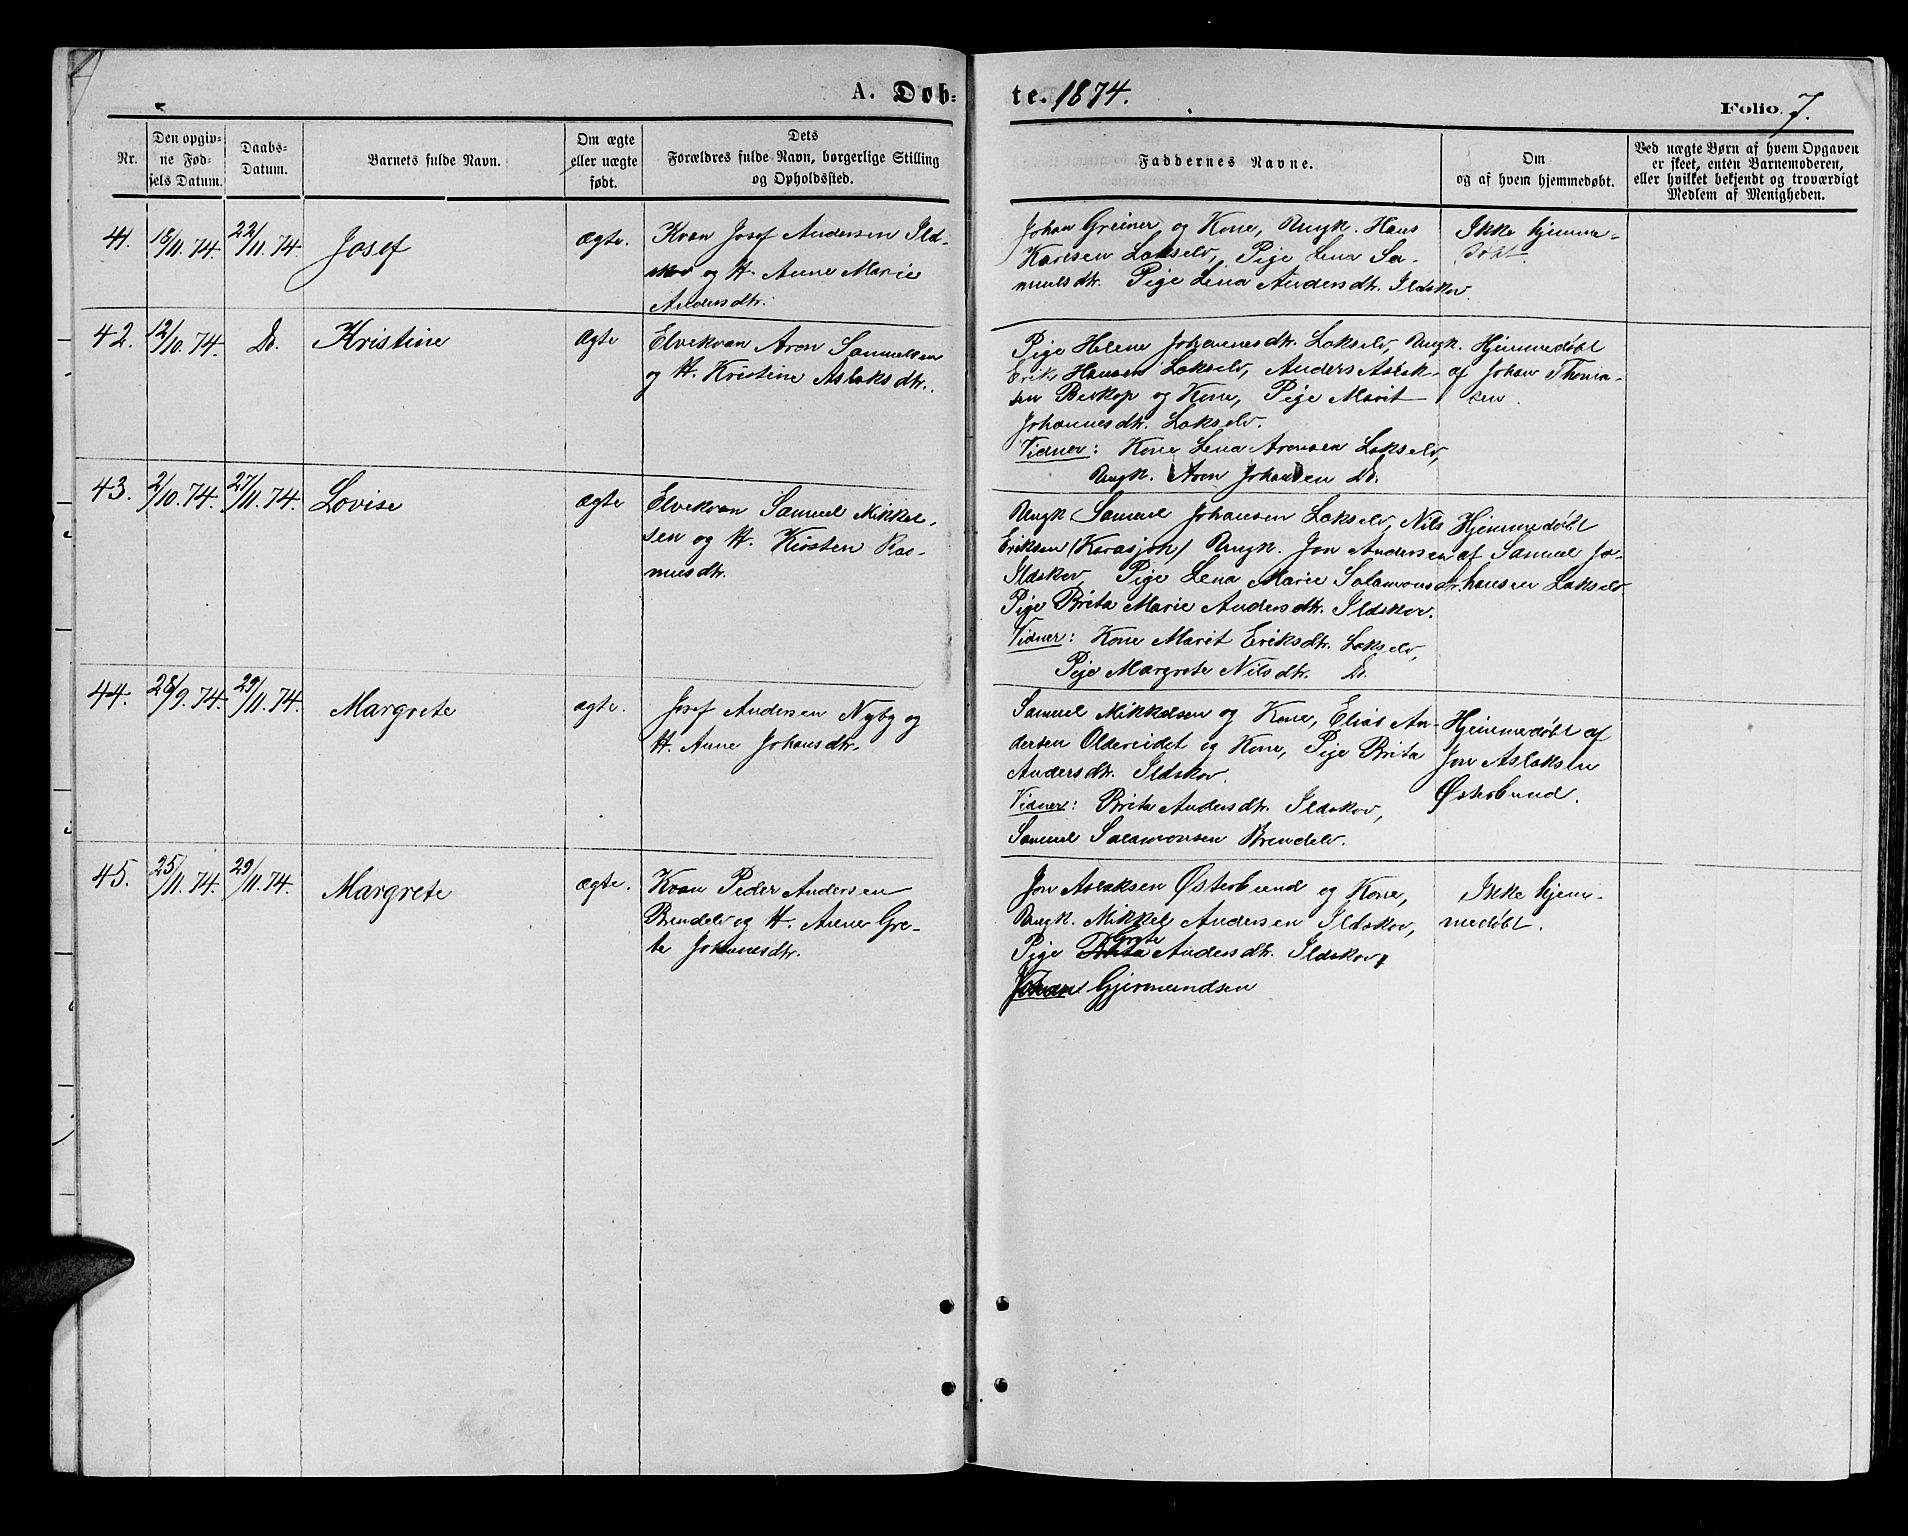 A. Døb-
te. 1874.
Folio. 7.
Nr.
Den opgiv-
ne Fød-
sels Datum.
Daabs-
Datum.
Barnets fulde Navn.
Om ægte
eller uægte
født.
Dets
Forældres fulde Navn, borgerlige Stilling
og Opholdssted.
Faddernes Navne.
Om
og af hvem hjemmedøbt.
Ved uægte Børn af hvem Opgaven
er skeet, enten Barnemoderen,
eller hvilket bekjendt og troværdigt
Medlem af Menigheden.
41.
18/11.74.
22/11.74.
Josef
ægte.
Kvæn Josef Andersen Ild-
skov og H. Anne Marie
Andersdtr.
Johan Greiner og Kone, Ungk. Hans
Karlsen Lakselv, Pige Lena Sa-
muelsdtr. Pige Lena Andersdtr. Ildskov.
Ikke hjemme-
døbt.
42.
12/10.74.
Do.
Kristine
ægte
Elvekvæn Aron Samuelsen
og H. Kristine Aslaksdtr.
Pige Helene Johannesdtr. Lakselv, Ungk.
Erik Hansen Lakselv, Anders Aslak-
sen Beskop og Kone, Pige Marit
Johannesdtr. Lakselv.
Vidner: Kone Lena Aronsen Lakselv,
Ungk. Aron Johansen Do.
Hjemmedøbt
af Johan Thoma-
sen.
43.
2/10.74.
27/11.74.
Lovise
ægte
Elvekvæn Samuel Mikkel-
sen og H. Kirsten Ras-
musdtr.
Ungk Samuel Johansen Lakselv, Nils
Eriksen (Karasjok) Ungk. Jon Andersen
Ildskov, Pige Lena Marie Salamonsdtr.
Pige Brita Marie Andersdtr. Ildskov.
Vidner: Kone Marit Eriksdtr. Lakselv,
Pige Margrete Nilsdtr. Do.
Hjemmedøbt
af Samuel Jo-
hansen Lakselv
44.
28/9.74.
29/11.74.
Margrete
ægte.
Josef Andersen Nyby og
H. Anne Johansdtr.
Samuel Mikkelsen og Kone, Elias An-
dersen Oldereidet og Kone, Pige Brita
Andersdtr. Ildskov.
Vidner: Brita Andersdtr. Ildskov,
Samuel Salamonsen Brendelv.
Hjemmedøbt af
Jon Aslaksen
Østerbund.
45.
25/11.74.
29/11.74.
Margrete
ægte.
Kvæn Peder Andersen
Brendelv og H. Anne Gre-
te Johannesdtr.
Jon Aslaksen Østerbund og Kone,
Ungk. Mikkel Andersen Ildskov,
Pige Grete Andersdtr. Ildskov,
Gjermundsen
Ikke hjem-
medøbt.